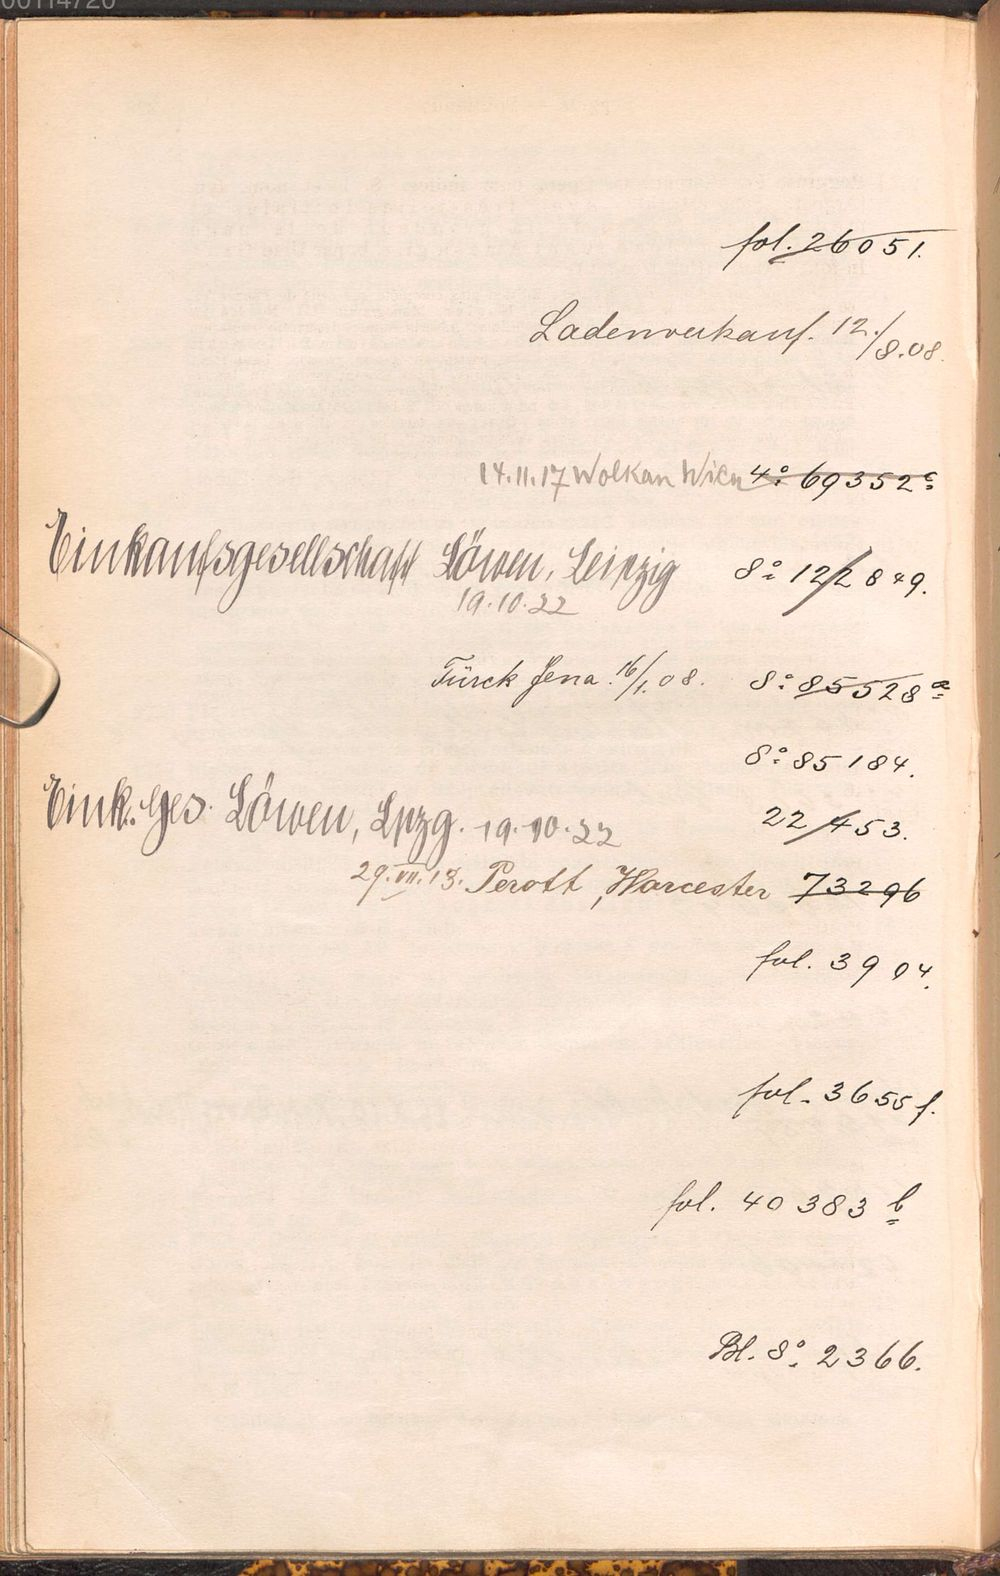 00114720
fol. 26051.
Ladenverkauf. 12./8.08.
14.11.17 Wolkan Wien 4° 69352c
Einkaufsgesellschaft Löwen, Leipzig 8° 12/2849.
19.10.22
Türck Jena. 16/1.08. 8° 85528a
8° 85184.
Eink. Ges. Löwen, Lpzg. 19.10.22 22453.
29.VII.13. Perott, Worcester 73296
fol. 3904.
fol. 3655f.
fol. 40383b
Bl. 8° 2366.